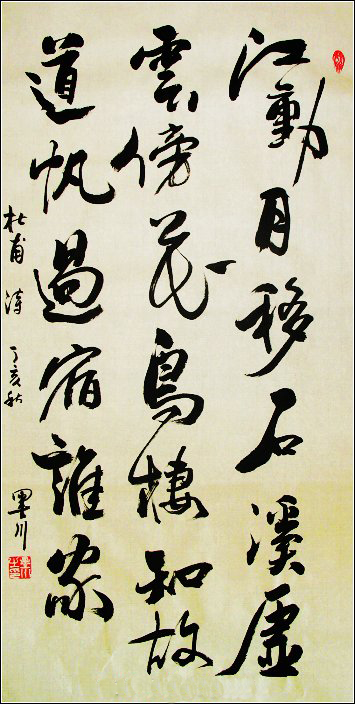 江動月移石溪虛
雲傍花鳥棲知故
道帆過宿誰家
杜甫詩 丁亥秋 墨川